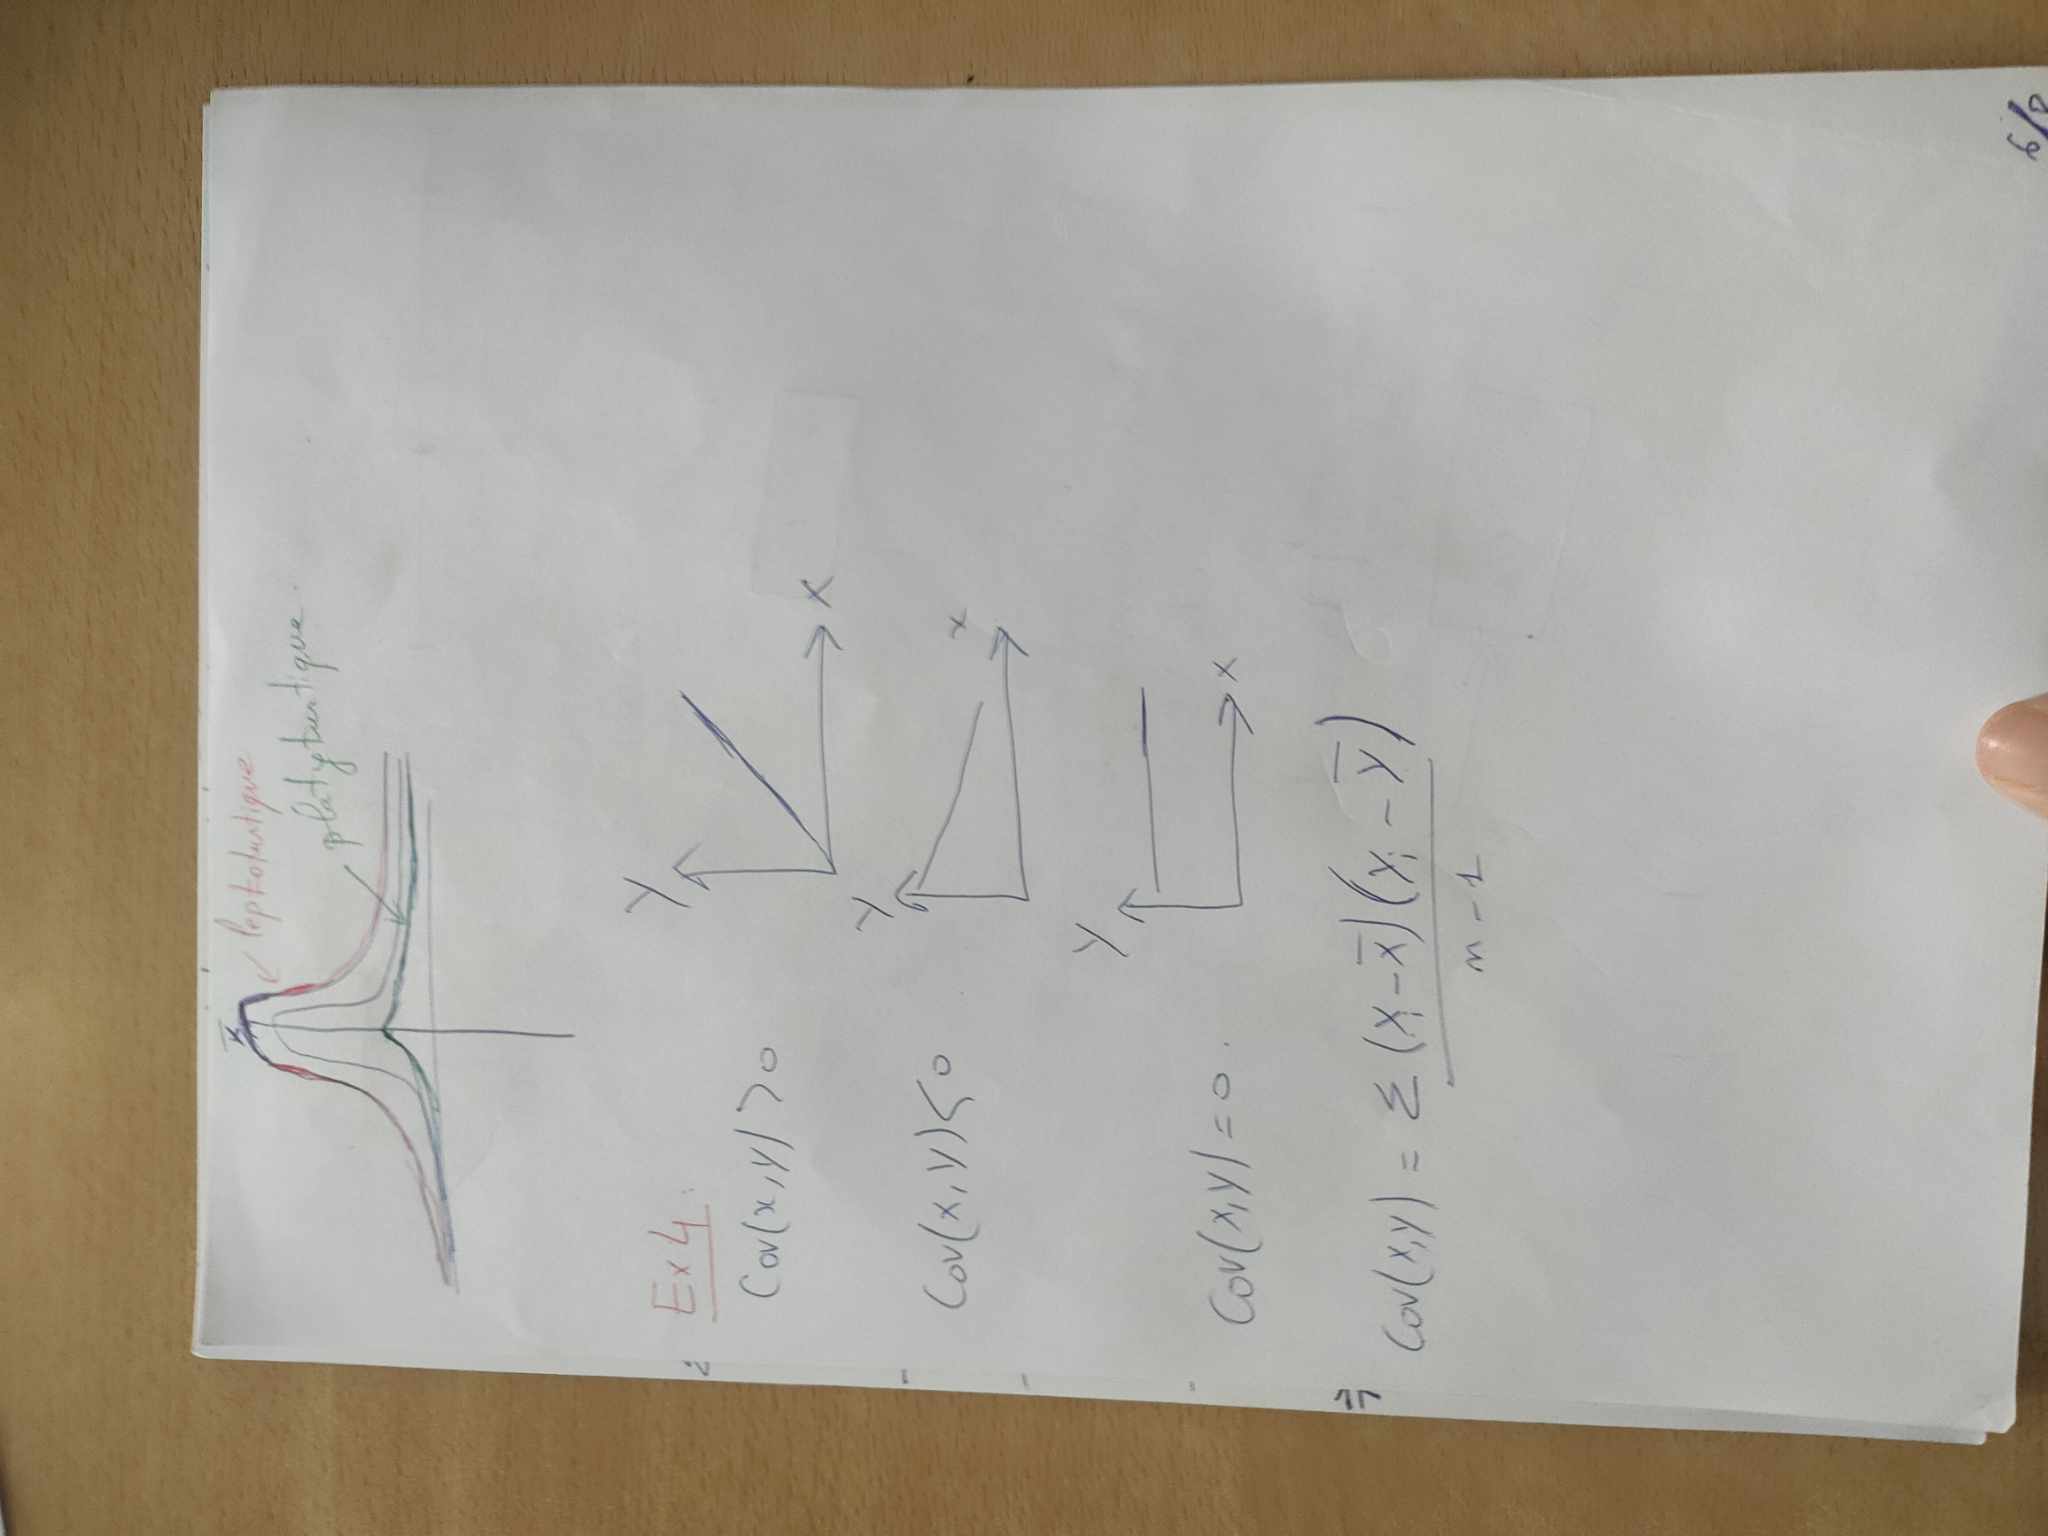 x̄
leptokurtique
platykurtique.
Ex 4:
Y
X
Cov(x,y)>0
Y
x
Cov(x,y)<0
Y
X
Cov(x,y)=0.
Cov(x,y) = Σ (xi-x̄)(yi-ȳ)
n-1